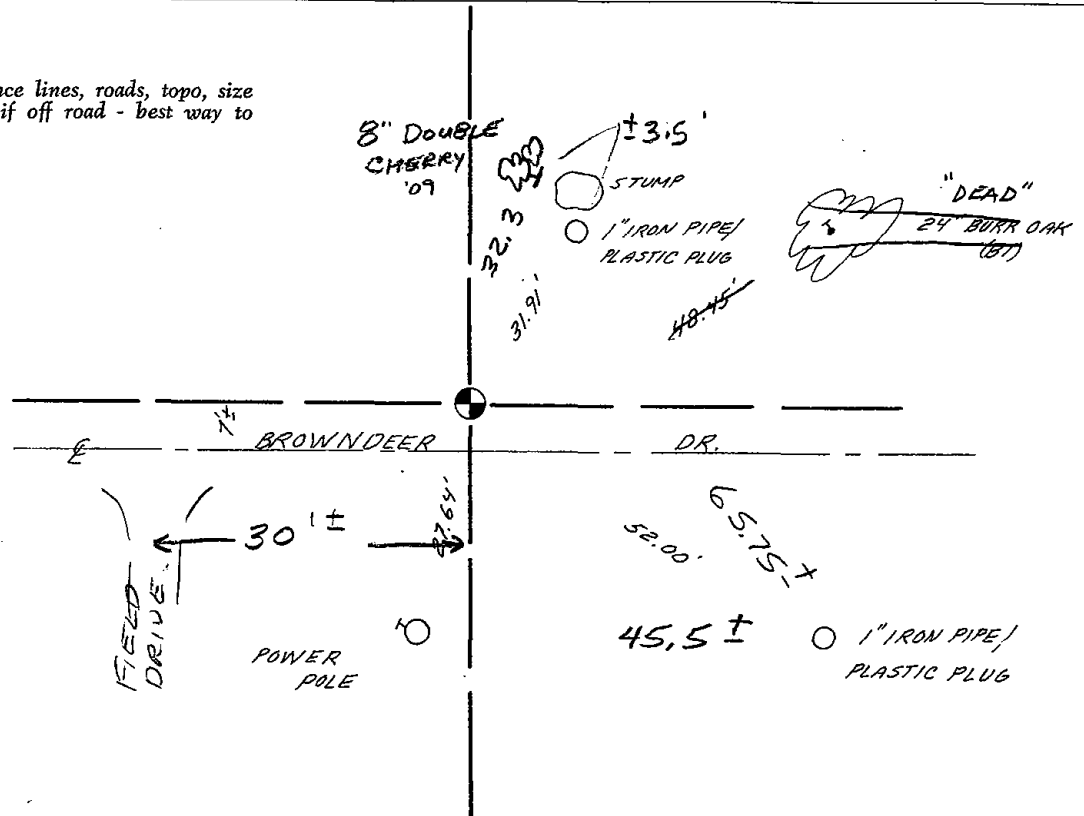 nce lines, roads, topo, size
if off road - best way to
8" DOUBLE
CHERRY
'09
±3.5'
STUMP
1" IRON PIPE/
PLASTIC PLUG
32.3
31.91'
"DEAD"
24" BURR OAK
(BT)
48.45'
7'±
BROWNDEER DR.
30'±
52.00'
65.75±
FIELD
DRIVE
POWER
POLE
45.5±
1" IRON PIPE/
PLASTIC PLUG